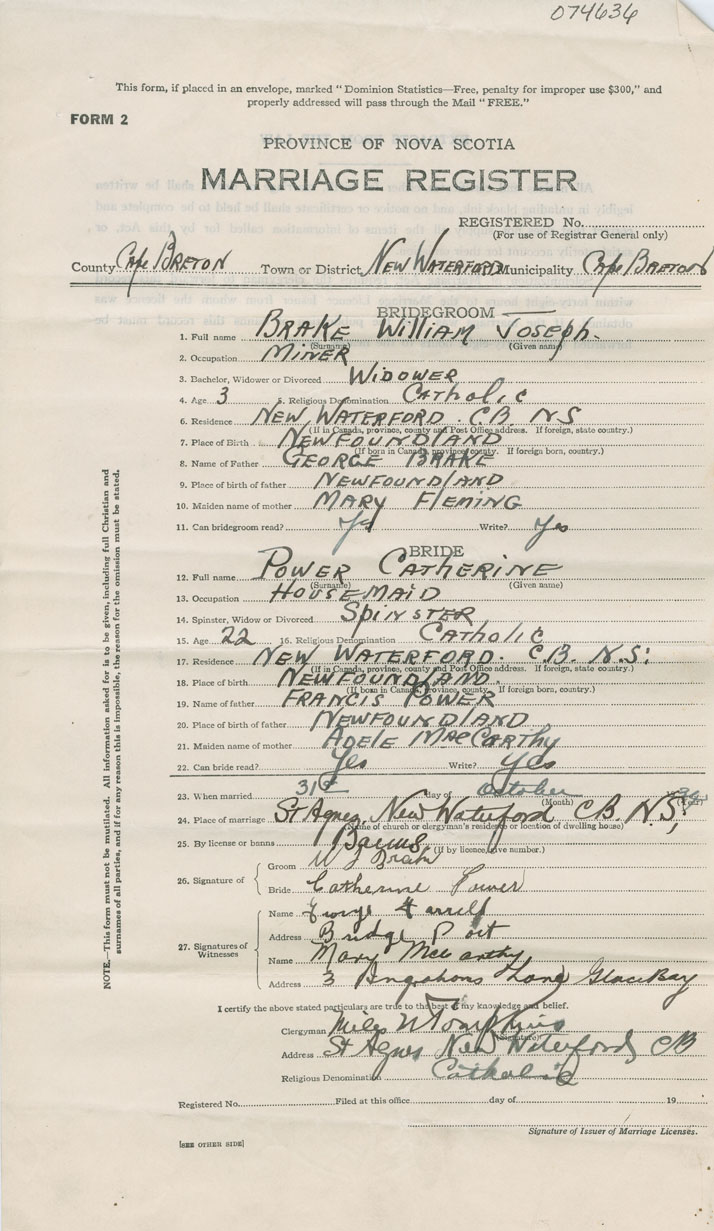 074636
This form, if placed in an envelope, marked "Dominion Statistics—Free, penalty for improper use $300," and
properly addressed will pass through the Mail "FREE."
FORM 2
PROVINCE OF NOVA SCOTIA
MARRIAGE REGISTER
REGISTERED No.
(For use of Registrar General only)
County Cape BRETON Town or District NEW WATERFORD Municipality Cape BRETON
BRIDEGROOM
1. Full name BRAKE William JOSEPH.
(Surname) (Given name)
2. Occupation MINER
3. Bachelor, Widower or Divorced WIDOWER
4. Age 3 5. Religious Denomination CATHOLIC
6. Residence NEW WATERFORD. C.B. NS
(If in Canada, province, county and Post Office address. If foreign, state country.)
7. Place of Birth NEWFOUNDLAND
(If born in Canada, province, county. If foreign born, country.)
8. Name of Father GEORGE BRAKE
9. Place of birth of father NEWFOUNDLAND
10. Maiden name of mother MARY FLEMING
11. Can bridegroom read? Yes Write? Yes
BRIDE
12. Full name POWER CATHERINE
(Surname) (Given name)
13. Occupation HOUSEMAID
14. Spinster, Widow or Divorced SPINSTER
15. Age 22 16. Religious Denomination CATHOLIC
17. Residence NEW WATERFORD. C.B. N.S.
(If in Canada, province, county and Post Office address. If foreign, state country.)
18. Place of birth NEWFOUNDLAND.
(If born in Canada, province, county. If foreign born, country.)
19. Name of father FRANCIS POWER
20. Place of birth of father NEWFOUNDLAND
21. Maiden name of mother ADELE MACCARTHY
22. Can bride read? Yes Write? Yes
23. When married 31st day of October
(Month) (Year)
24. Place of marriage St Agnes, New Waterford CB N.S.
(Name of church or clergyman's residence or location of dwelling house)
25. By license or banns Banns
(If by licence, give number.)
26. Signature of
Groom W J Brake
Bride Catherine Power
27. Signatures of Witnesses
Name George Farrell
Address Bridge Port
Name Mary McCarthy
Address 3 Lane Glace Bay
I certify the above stated particulars are true to the best of my knowledge and belief.
Clergyman Miles N Tompkins
(Signature)
Address St Agnes New Waterford CB
Religious Denomination Catholic
Registered No. Filed at this office day of 19
Signature of Issuer of Marriage Licenses.
[SEE OTHER SIDE]
NOTE.—This form must not be mutilated. All information asked for is to be given, including full Christian and
surnames of all parties, and if for any reason this is impossible, the reason for the omission must be stated.